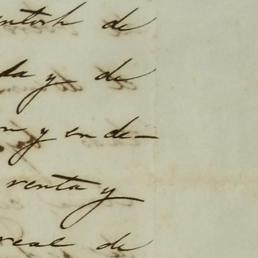 ntosh de
da y de
n y en de-
venta y
real de